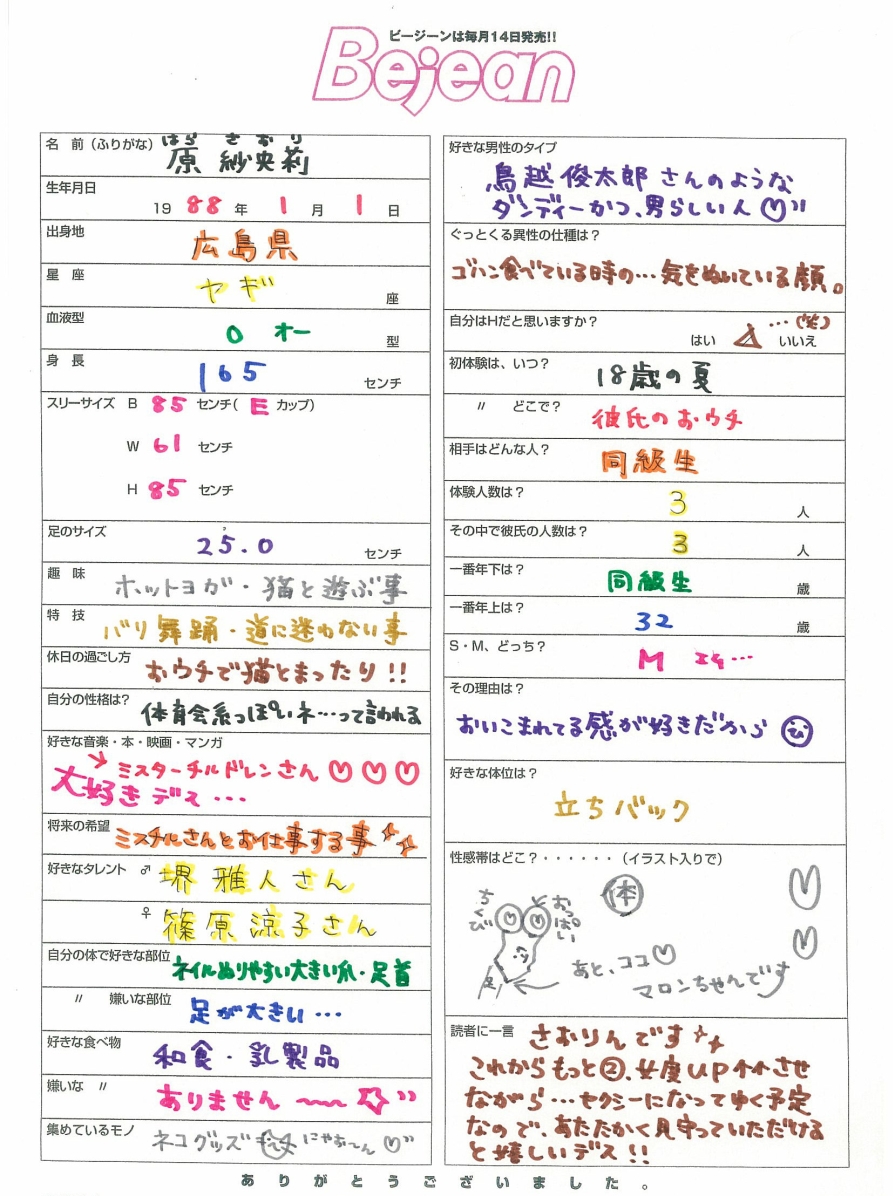 ビージーンは毎月14日発売!!
Bejean
名 前（ふりがな） はら さおり
原 紗央莉
生年月日
19 88 年 1 月 1 日
出身地
広島県
星 座
ヤギ 座
血液型
O オー 型
身 長
165 センチ
スリーサイズ B 85 センチ( E カップ)
W 61 センチ
H 85 センチ
足のサイズ
25.0 センチ
趣 味
ホットヨガ・猫と遊ぶ事
特 技
バリ舞踊・道に迷わない事
休日の過ごし方
おウチで猫とまったり!!
自分の性格は?
体育会系っぽいネ…って言われる
好きな音楽・本・映画・マンガ
ミスターチルドレンさん♡♡♡
大好きデス…
将来の希望
ミスチルさんとお仕事する事
好きなタレント ♂ 堺 雅人さん
♀ 篠原 涼子さん
自分の体で好きな部位
ネイルぬりやすい大きい爪・足首
〃 嫌いな部位
足が大きい…
好きな食べ物
和食・乳製品
嫌いな 〃
ありません〜〜☆
集めているモノ
ネコグッズ にゃお〜ん♡
好きな男性のタイプ
鳥越俊太郎さんのような
ダンディーかつ、男らしい人♡
ぐっとくる異性の仕種は?
ゴハン食べている時の…気をぬいている顔。
自分はHだと思いますか?
…(笑)
はい △ いいえ
初体験は、いつ?
18歳の夏
〃 どこで?
彼氏のおウチ
相手はどんな人?
同級生
体験人数は?
3 人
その中で彼氏の人数は?
3 人
一番年下は?
同級生 歳
一番年上は?
32 歳
S・M、どっち?
M エム…
その理由は?
おいこまれてる感が好きだから
好きな体位は?
立ちバック
性感帯はどこ?・・・・・・（イラスト入りで）
体
ちくび
と
おっぱい
足
あと、ココ♡
マロンちゃんです
読者に一言
さおりんです
これからもっと②、女度UP↑↑させ
ながら…セクシーになってゆく予定
なので、あたたかく見守っていただける
と嬉しいデス!!
ありがとうございました。